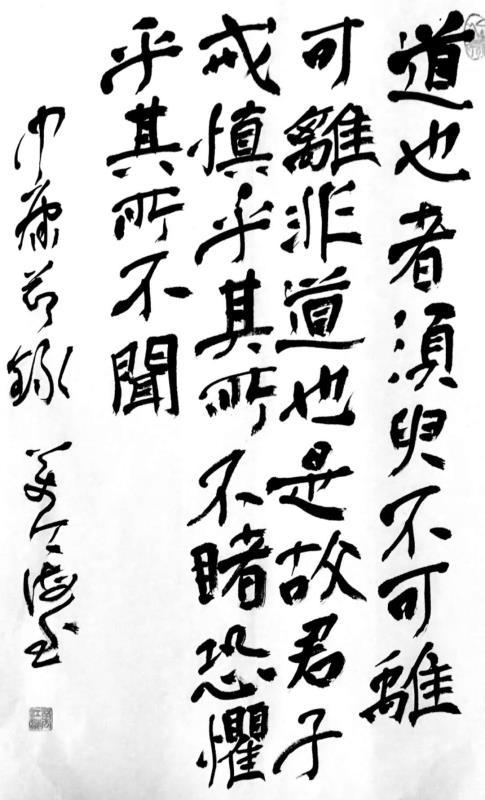 道也者須臾不可離
可離非道也是故君子
戒慎乎其所不睹恐懼
乎其所不聞
中庸節錄